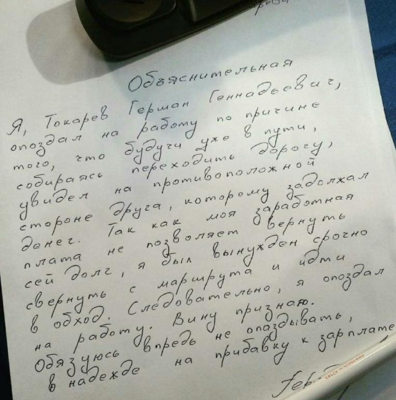 Объяснительная
Я, Токарев Герман Геннадьевич,
опоздал на работу по причине
того, что будучи уже в пути,
собираясь переходить дорогу,
увидел на противоположной
стороне друга, которому задолжал
денег. Так как моя заработная
плата не позволяет вернуть
сей долг, я был вынужден срочно
свернуть с маршрута и идти
в обход. Следовательно, я опоздал
на работу. Вину признаю.
Обязуюсь впредь не опаздывать,
в надежде на прибавку к зарплате